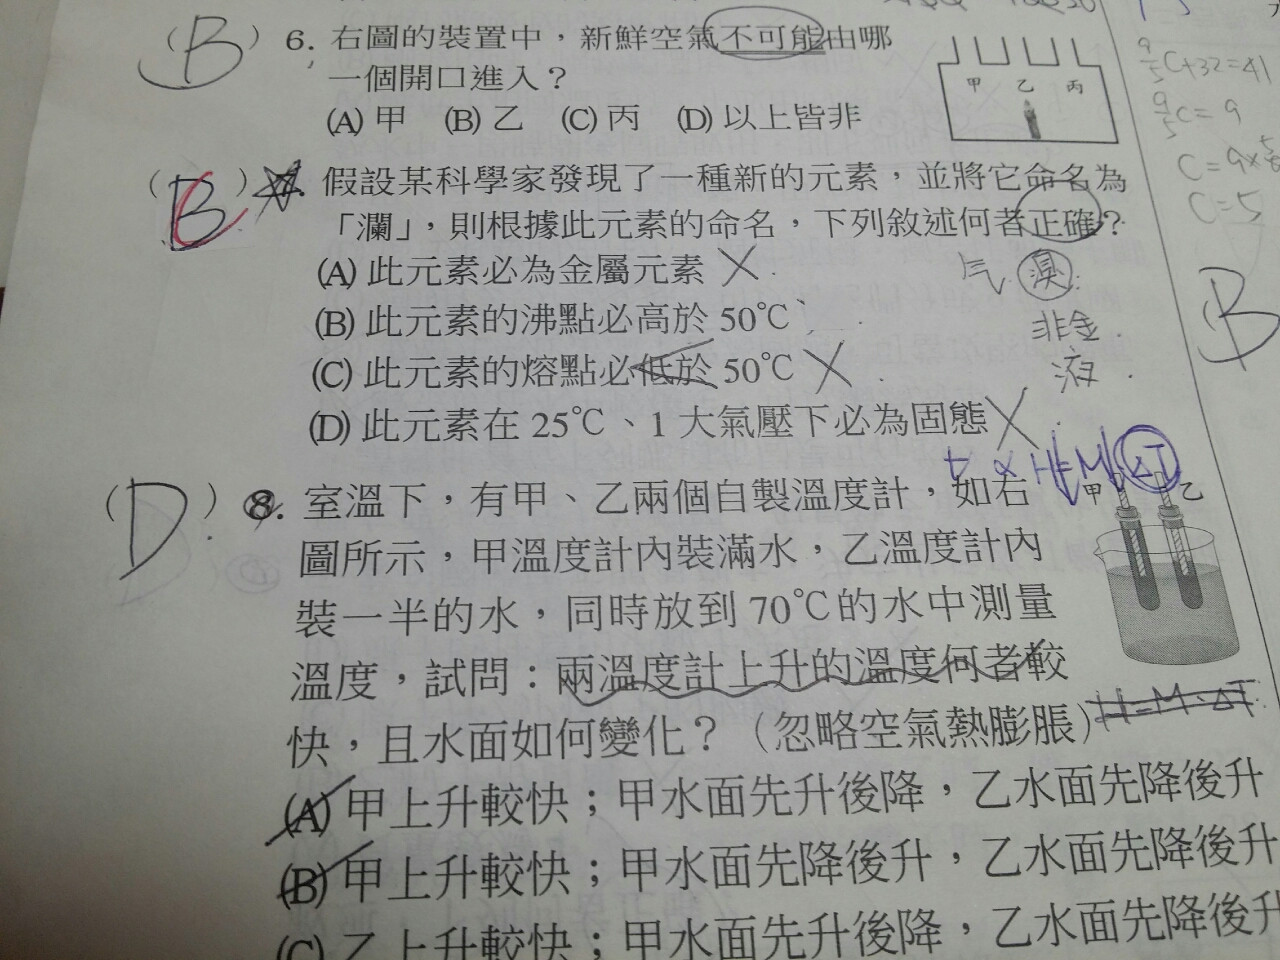 (B) 6. 右圖的裝置中，新鮮空氣不可能由哪
一個開口進入？
(A) 甲 (B) 乙 (C) 丙 (D) 以上皆非
甲 乙 丙
9/5 C+32=41
9/5 C= 9
C=9×5/9
C=5
(B) 7. 假設某科學家發現了一種新的元素，並將它命名為
「瀾」，則根據此元素的命名，下列敘述何者正確？
(A) 此元素必為金屬元素
(B) 此元素的沸點必高於 50℃
(C) 此元素的熔點必低於 50℃
(D) 此元素在 25℃、1 大氣壓下必為固態
气 溴
非金
液
B
(D) 8. 室溫下，有甲、乙兩個自製溫度計，如右
圖所示，甲溫度計內裝滿水，乙溫度計內
裝一半的水，同時放到 70℃的水中測量
溫度，試問：兩溫度計上升的溫度何者較
快，且水面如何變化？（忽略空氣熱膨脹）
t ∝ H=M ΔT
甲 乙
H=M·ΔT
(A) 甲上升較快；甲水面先升後降，乙水面先降後升
(B) 甲上升較快；甲水面先降後升，乙水面先降後升
(C) 乙上升較快；甲水面先升後降，乙水面先降後升